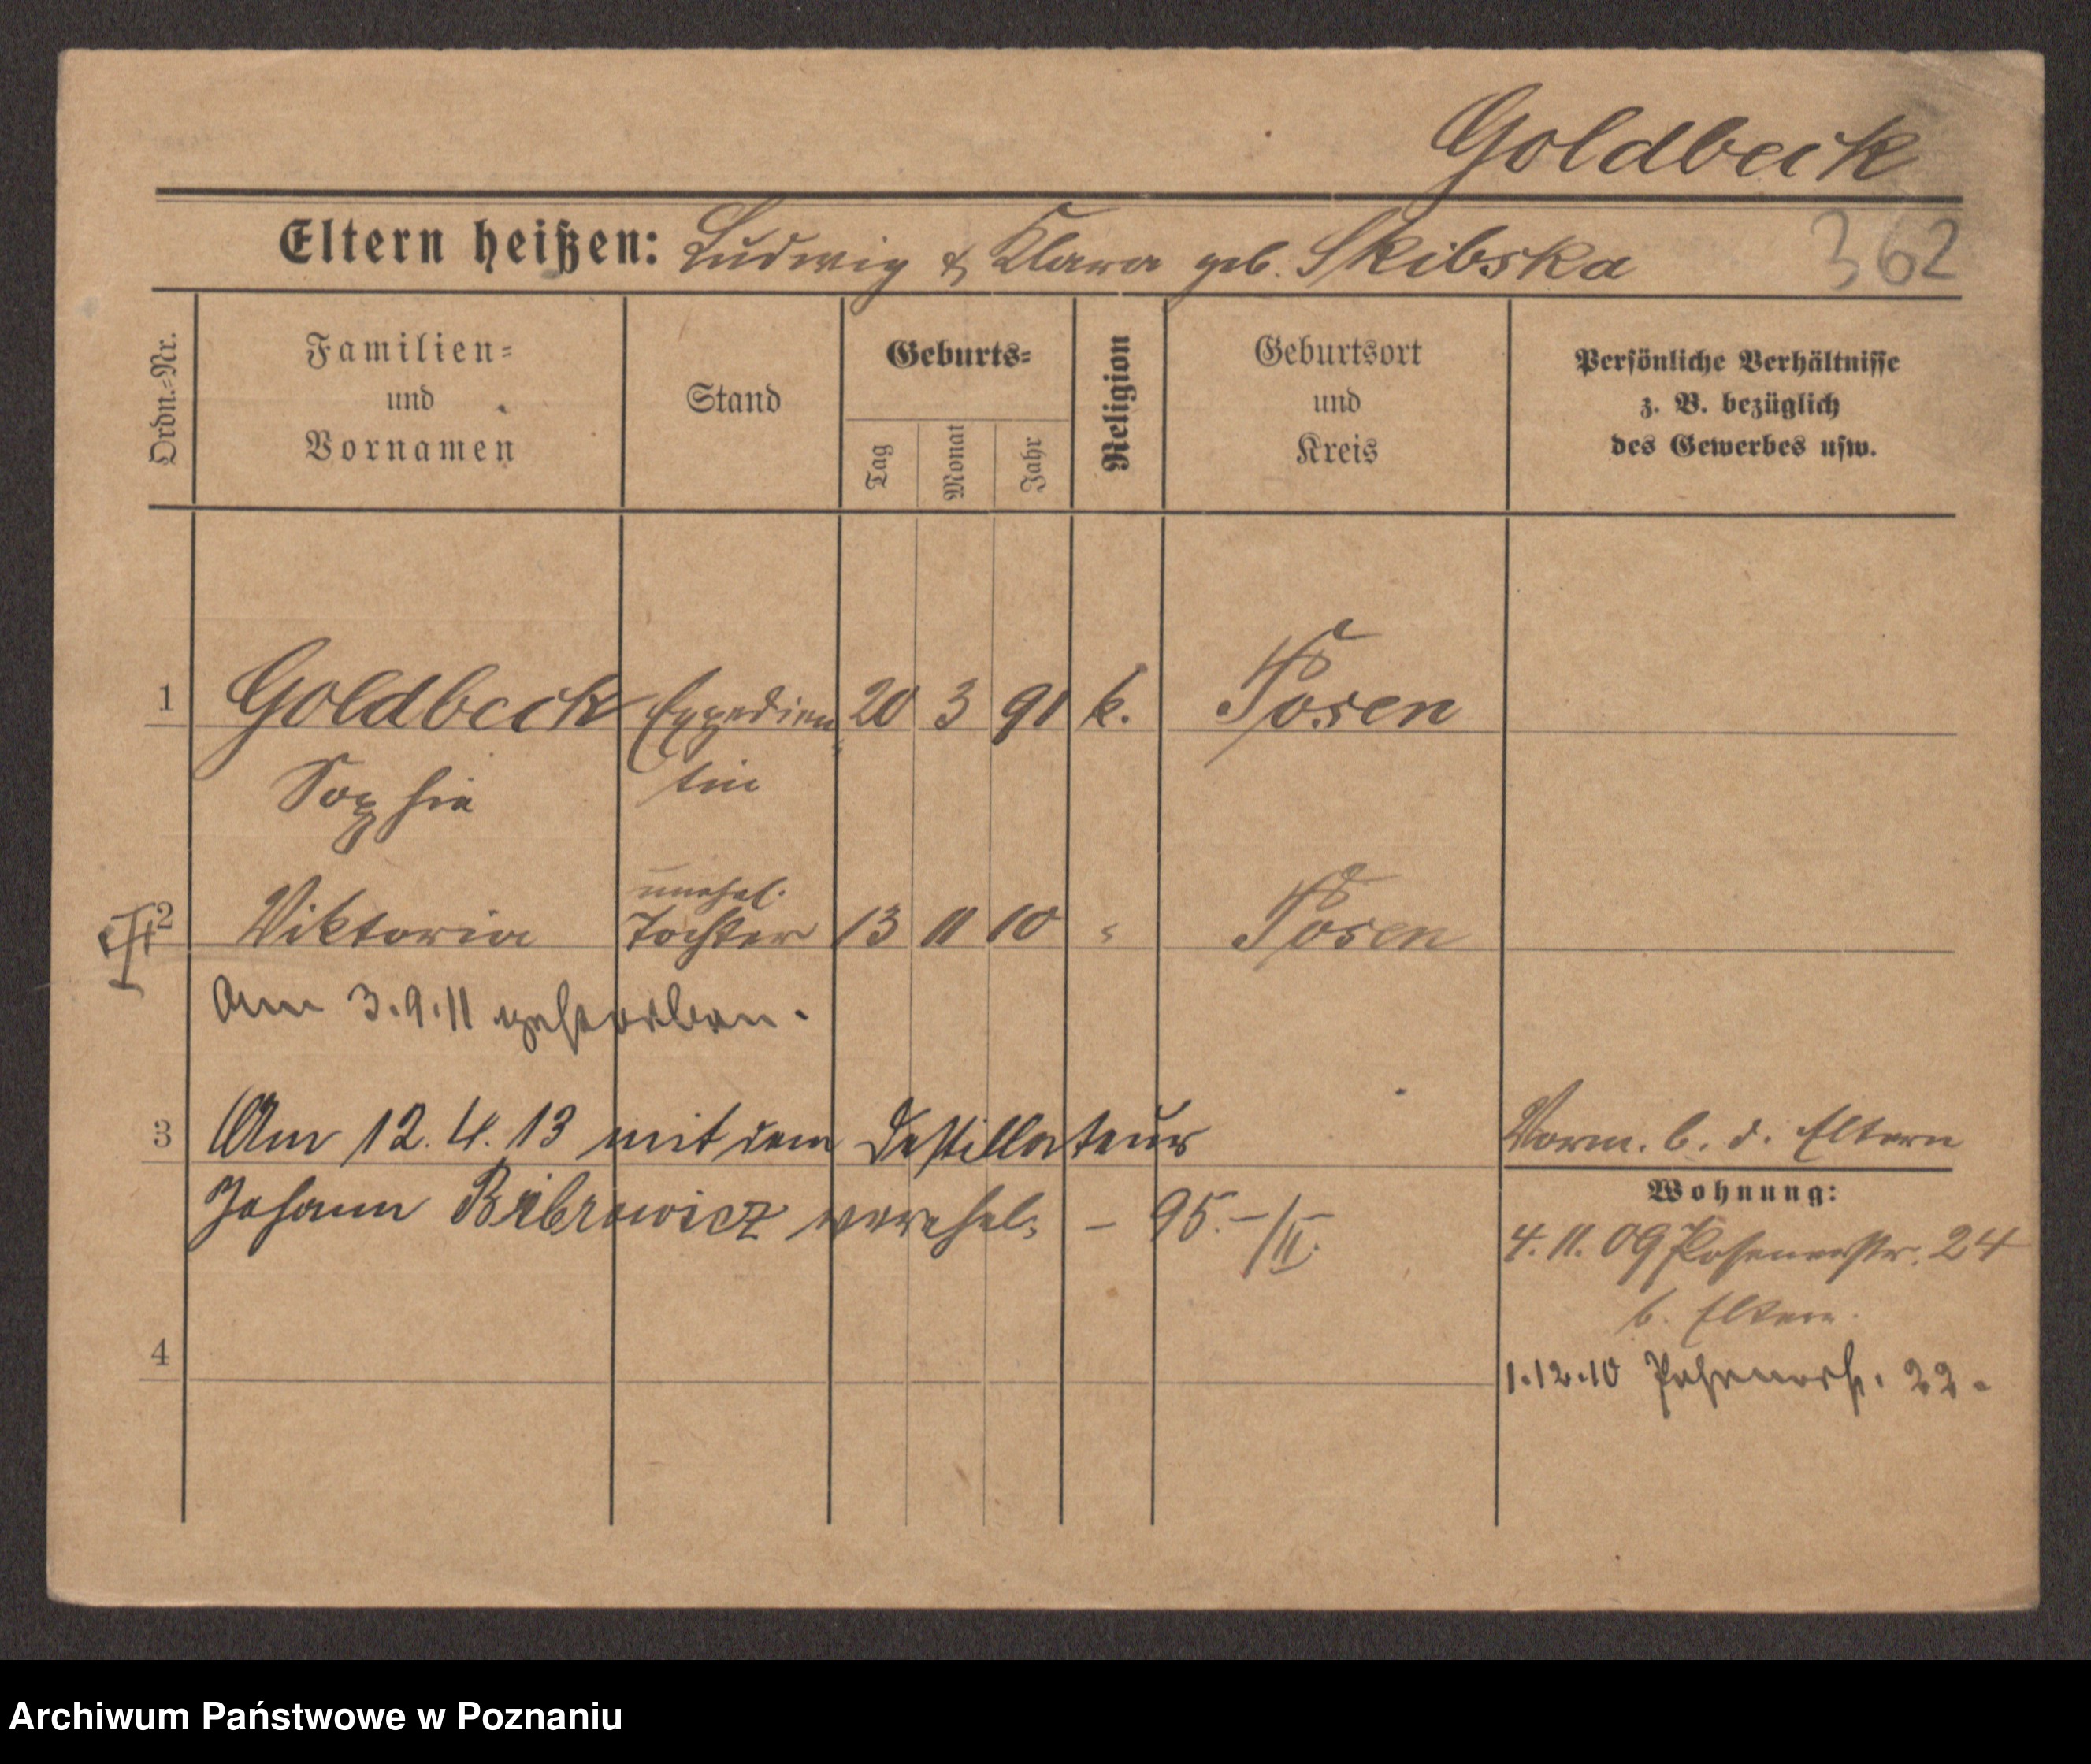 Goldbeck
Eltern heißen: Ludwig & Klara geb. Skibska 362
Ordn.=Nr.
Familien=
und
Vornamen
Stand
Geburts=
Tag
Monat
Jahr
Religion
Geburtsort
und
Kreis
Persönliche Verhältnisse
z. B. bezüglich
des Gewerbes usw.
1 Goldbeck Expedien= 20 3 91 k. Posen
Sophie tin
unehel.
2 Viktoria Tochter 13 11 10 " Posen
Am 3.9.11 gestorben.
3 Am 12.4.13 mit dem Destillateur
Johann Bibrowicz verehel. – 95.–/II.
Vorm. b. d. Eltern
Wohnung:
4.11.09 Posenerstr. 24
b. Eltern.
4
1.12.10 Posenerstr. 22.
Archiwum Państwowe w Poznaniu